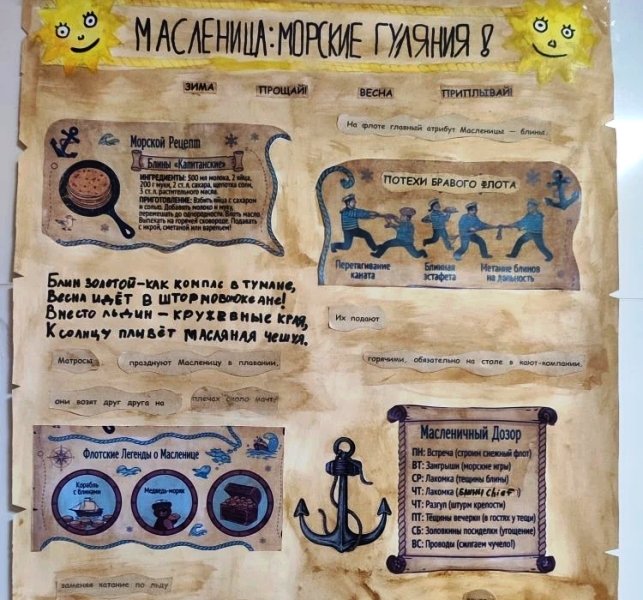 МАСЛЕНИЦА: МОРСКИЕ ГУЛЯНИЯ!
ЗИМА ПРОЩАЙ! ВЕСНА ПРИПЛЫВАЙ!
На флоте главный атрибут Масленицы — блины.
Морской Рецепт
Блины «Капитанские»
ИНГРЕДИЕНТЫ: 500 мл молока, 2 яйца,
200 г муки, 2 ст.л. сахара, щепотка соли,
3 ст.л. растительного масла.
ПРИГОТОВЛЕНИЕ: Взбить яйца с сахаром
и солью. Добавить молоко и муку,
перемешать до однородности. Влить масло.
Выпекать на горячей сковороде. Подавать
с икрой, сметаной или вареньем!
ПОТЕХИ БРАВОГО ФЛОТА
Перетягивание
каната
Блинная
эстафета
Метание блинов
на дальность
Блин золотой-как компас в тумане,
Весна идёт в штормовом океане!
Вместо льдин - кружевные края,
К солнцу плывёт масляная чешуя.
Их подают
горячими, обязательно на столе в кают-компании.
Матросы празднуют Масленицу в плавании,
они возят друг друга на плечах около мачты
Флотские Легенды о Масленице
Корабль
с блинами
Медведь-моряк
Масленичный Дозор
ПН: Встреча (строим снежный флот)
ВТ: Заигрыши (морские игры)
СР: Лакомка (тещины блины)
ЧТ: Лакомка (
ЧТ: Разгул (штурм крепости)
ПТ: Тёщины вечерки (в гостях у тещи)
СБ: Золовкины посиделки (угощение)
ВС: Проводы (сжигаем чучело!)
заменяя катание по льду